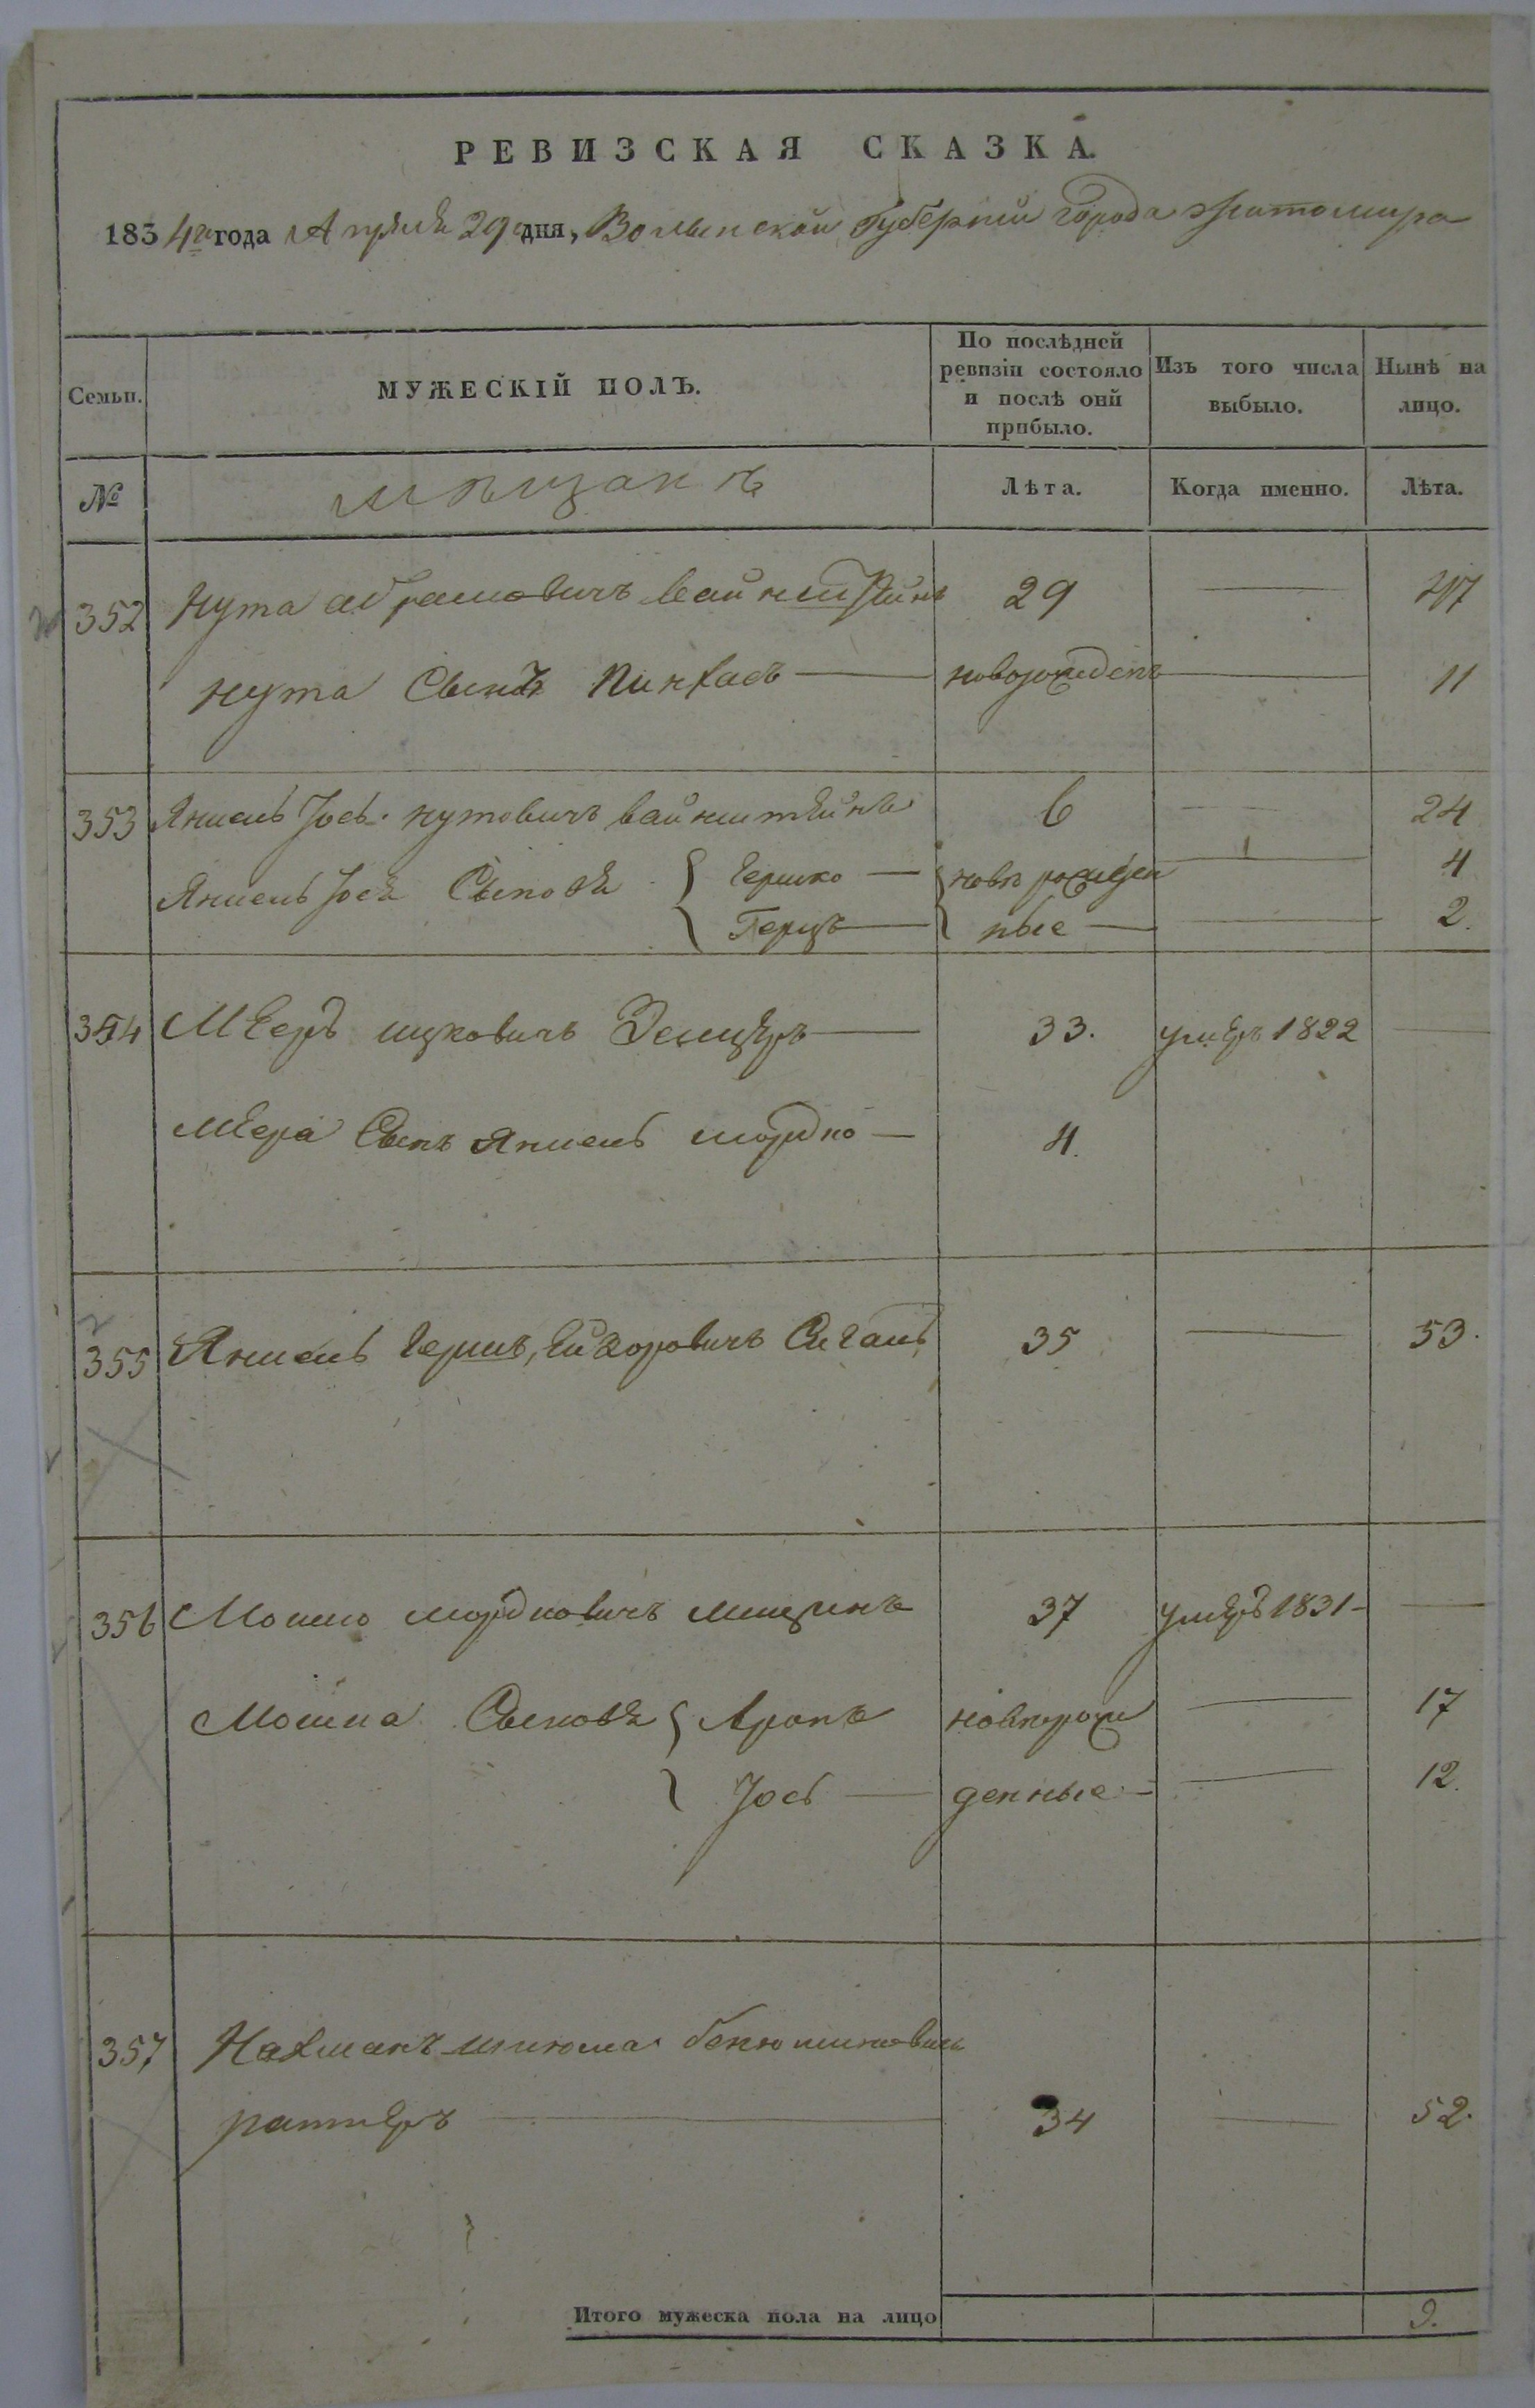 РЕВИЗСКАЯ СКАЗКА.
1834го года Апреля 29 дня, Волынской Губернии города Житомира
Семьи.
МУЖЕСКІЙ ПОЛЪ.
По послѣдней ревизіи состояло и послѣ оній прибыло.
Изъ того числа выбыло.
Нынѣ на лицо.
№
мѣщанъ
Лѣта.
Когда именно.
Лѣта.
352 Нута абрамовичъ вайнштейнъ 29 — 47
нута Сынъ Пинхасъ — новорожденъ — 11
353 Янкель Јось нутовичъ вайнштейнъ 6 — 24
Янкель Јося Сыновя { Гершко — { новорожден — 4
{ Герцъ — { ные — 2.
354 Мееръ ицковичъ Зельцеръ — 33. умеръ 1822 —
меера Сынъ янкель мордко — 4.
355 Янкель Гершъ, 35 — 53.
356 Мошко мордковичъ 37 умеръ 1831 — —
Мошка Сыновя { Аронъ новорож — 17
{ Јось — денные — 12.
357 Нахманъ шлюма бенюминовичъ
ратнеръ — 34 — 52.
Итого мужеска пола на лицо 9.